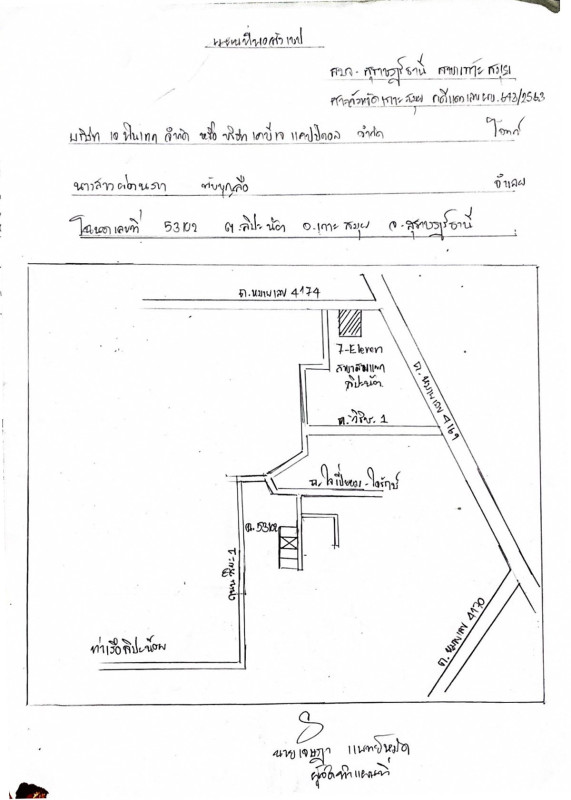 แผนที่พอสังเขป
สบจ. สุราษฎร์ธานี สาขาเกาะสมุย
ศาลจังหวัดเกาะสมุย คดีแดงเลข ผบ.643/2563
บริษัท เจ ฟินเทค จำกัด หรือ บริษัท เคบี เจ แคปปิตอล จำกัด โจทก์
นางสาว จำเลย
โฉนดเลขที่ 53102 ต.ลิปะน้อย อ.เกาะสมุย จ.สุราษฎร์ธานี
ถ.หมายเลข 4174
7-Eleven
สาขาสามแยก
ลิปะน้อย
ถ.หมายเลข 4169
ถ. 1
ฉ.53102
ถนน 1
ถ.หมายเลข 4170
ท่าเรือลิปะน้อย
นายเจษฎา
ผู้จัดทำแผนที่